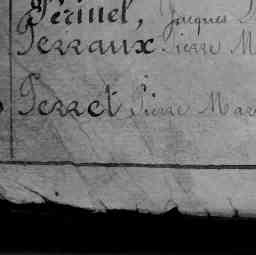 Périnel, Jacques
Perraux Pierre M
Perret Pierre Mar